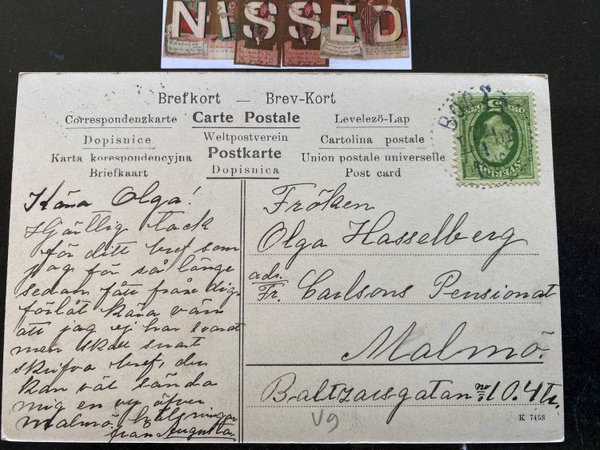 NISSED
Brefkort — Brev-Kort
Correspondenzkarte Carte Postale Levelező-Lap
Dopisnice Weltpostverein Cartolina postale
Karta korespondencyjna Postkarte Union postale universelle
Briefkaart Dopisnica Post card
SVERIGE
Kära Olga!
Hjärtlig tack
för ditt bref som
jag för så länge
sedan fått från dig,
förlåt kära vän
att jag ej har svarat
men skall snart
skrifva bref, du
kan väl sända
mig en vy öfver
Malmö, hälsningar
från Augusta.
Fröken
Olga Hasselberg
adr.
Fr. Carlsons Pensionat
Malmö.
Baltzarsgatan no 10. 4 tr.
V9
K 7458